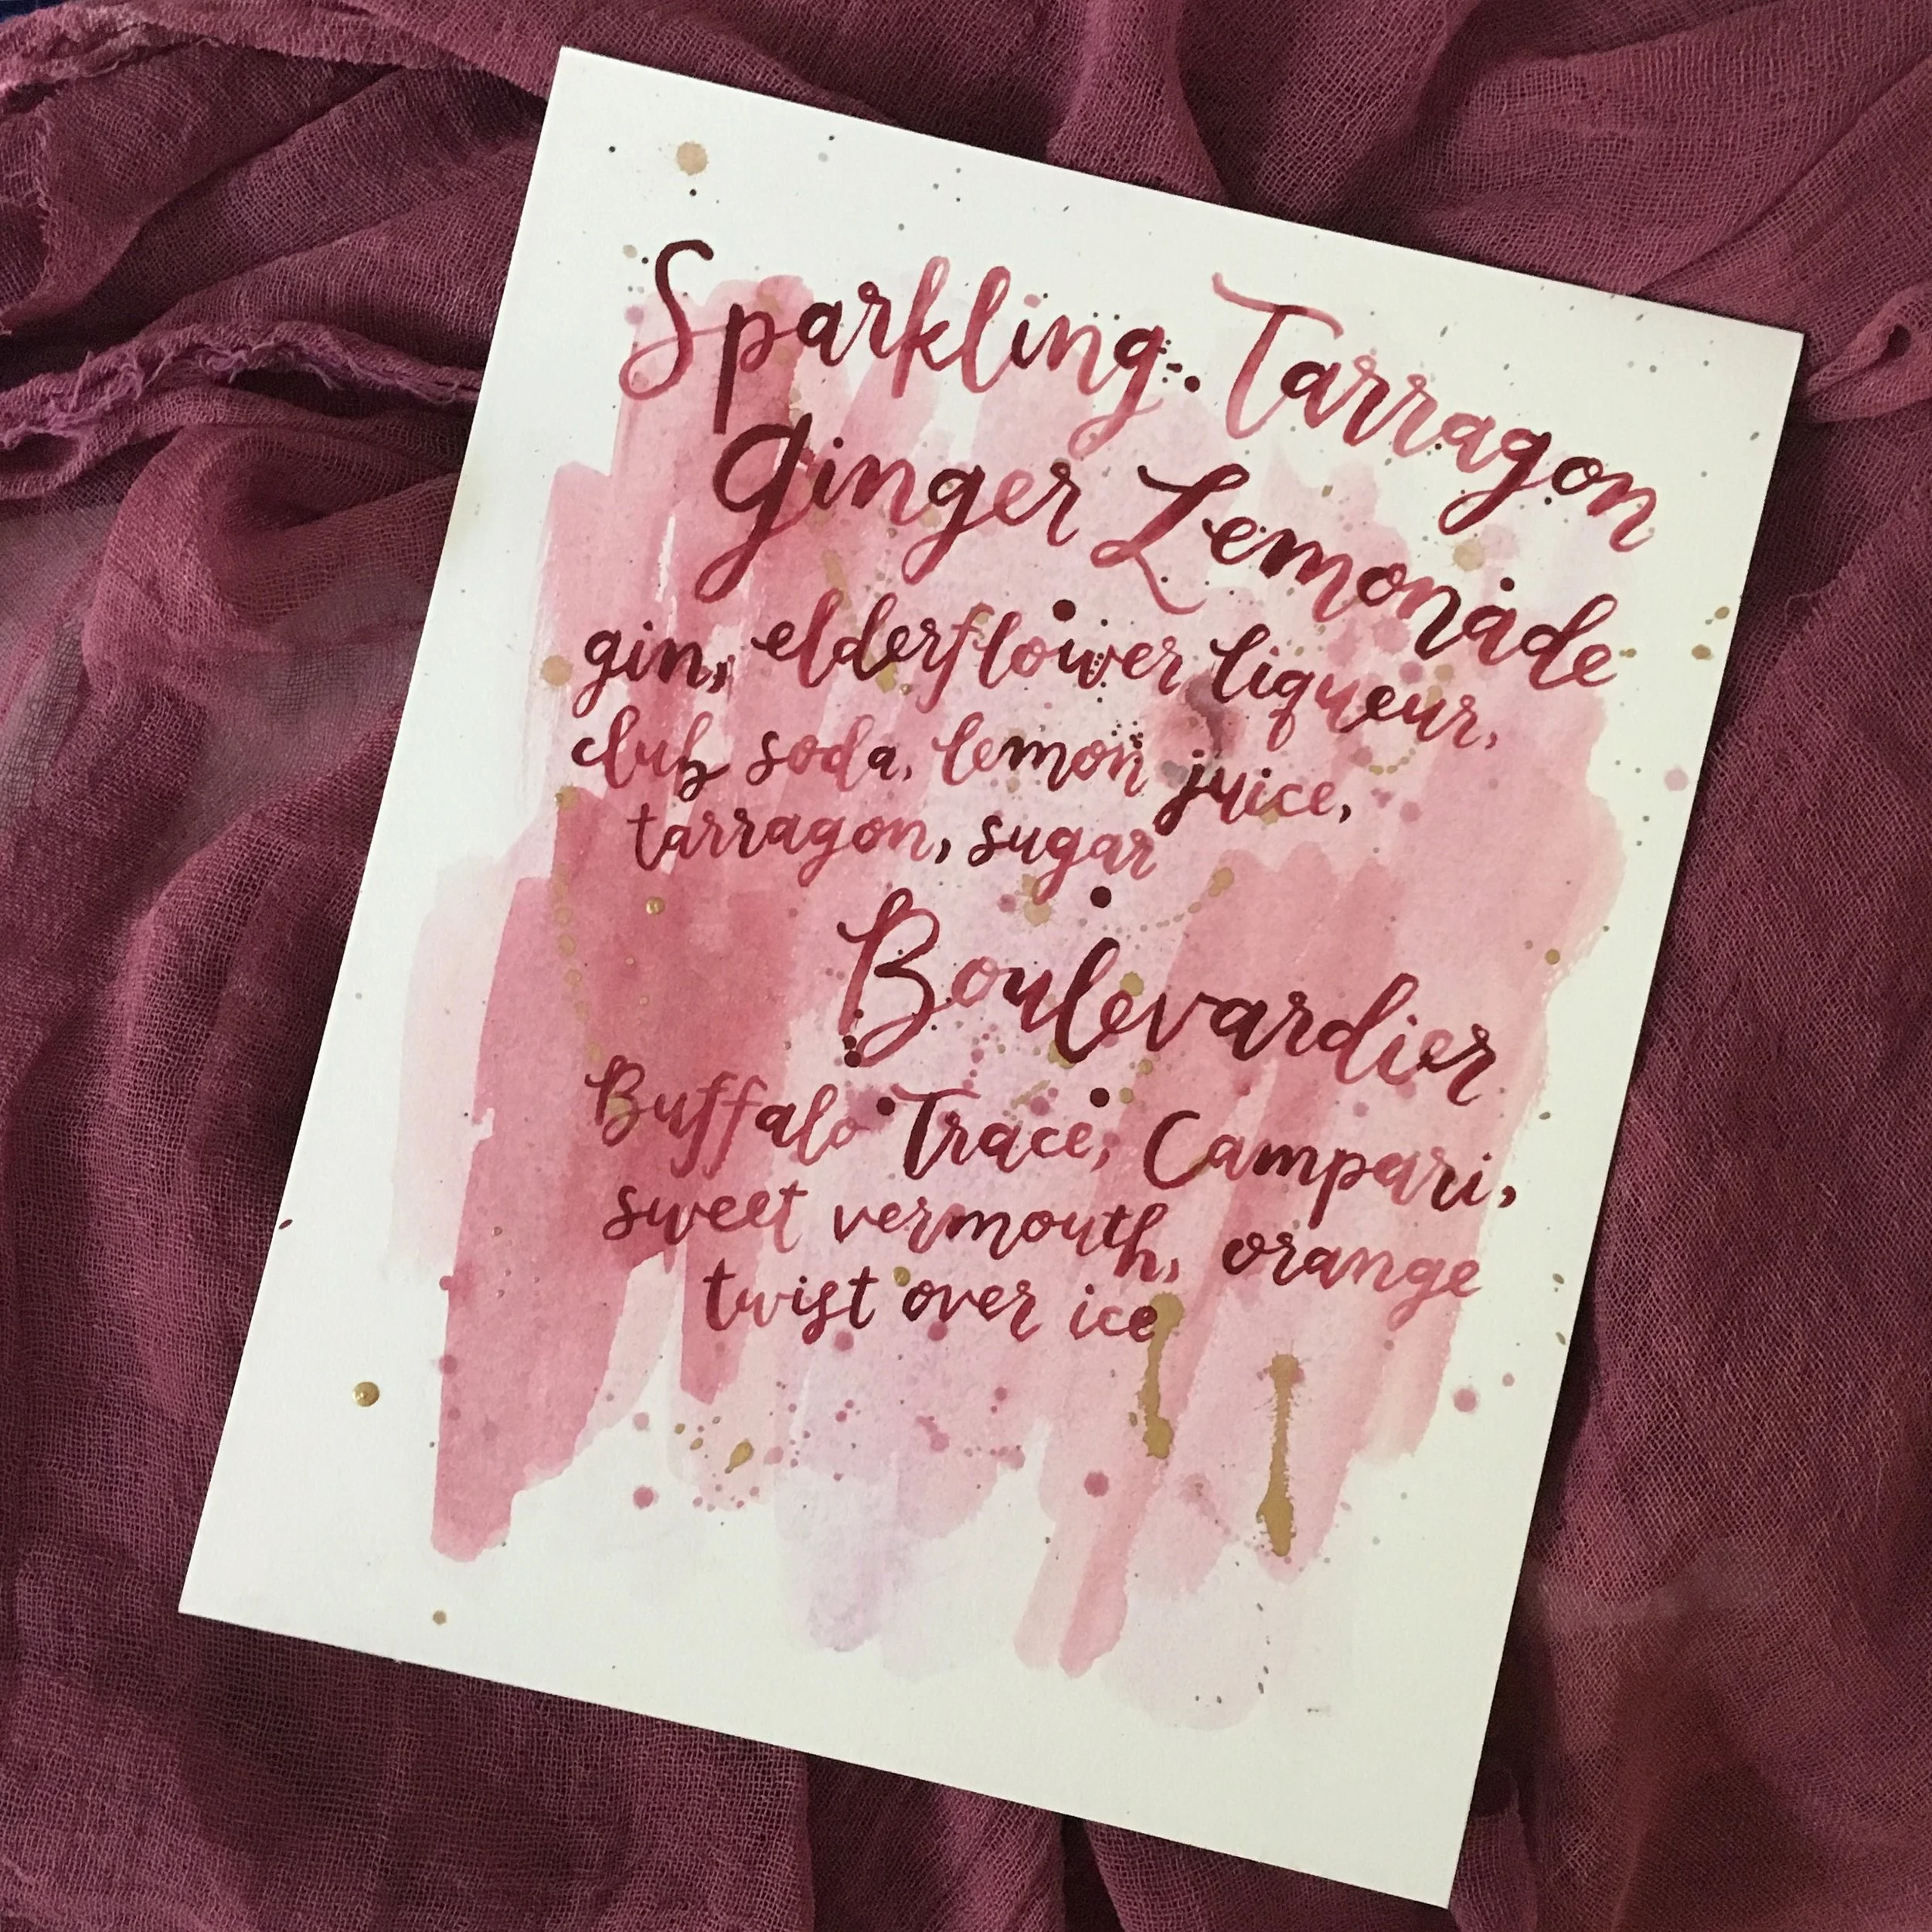 Sparkling Tarragon
Ginger Lemonade
gin, elderflower liqueur,
club soda, lemon juice,
tarragon, sugar
Boulevardier
Buffalo Trace, Campari,
sweet vermouth, orange
twist over ice